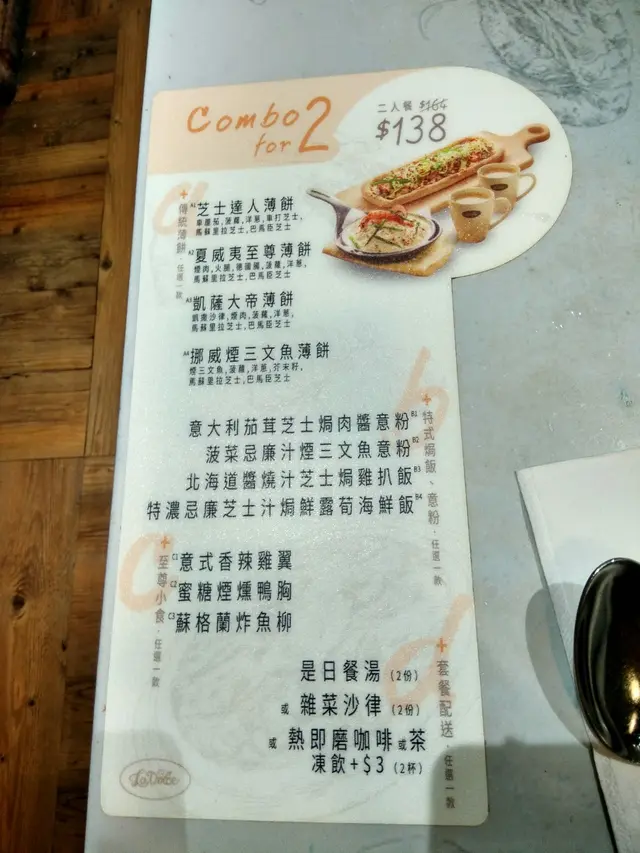 Combo
for 2
二人餐 $164
$138
a
+ 傳統薄餅 · 任選一款
A1 芝士達人薄餅
車厘茄, 菠蘿, 洋葱, 車打芝士,
馬蘇里拉芝士, 巴馬臣芝士
A2 夏威夷至尊薄餅
煙肉, 火腿, 德國腸, 菠蘿, 洋葱,
馬蘇里拉芝士, 巴馬臣芝士
A3 凱薩大帝薄餅
凱撒沙律, 煙肉, 菠蘿, 洋葱,
馬蘇里拉芝士, 巴馬臣芝士
A4 挪威煙三文魚薄餅
煙三文魚, 菠蘿, 洋葱, 芥末籽,
馬蘇里拉芝士, 巴馬臣芝士
b
+ 特式焗飯、意粉 · 任選一款
意大利茄茸芝士焗肉醬意粉 B1
菠菜忌廉汁煙三文魚意粉 B2
北海道醬燒汁芝士焗雞扒飯 B3
特濃忌廉芝士汁焗鮮露荀海鮮飯 B4
c
+ 至尊小食 · 任選一款
C1 意式香辣雞翼
C2 蜜糖煙燻鴨胸
C3 蘇格蘭炸魚柳
d
+ 套餐配送 · 任選一款
是日餐湯 (2份)
或 雜菜沙律 (2份)
或 熱即磨咖啡 或 茶
凍飲+$3 (2杯)
La Dolce